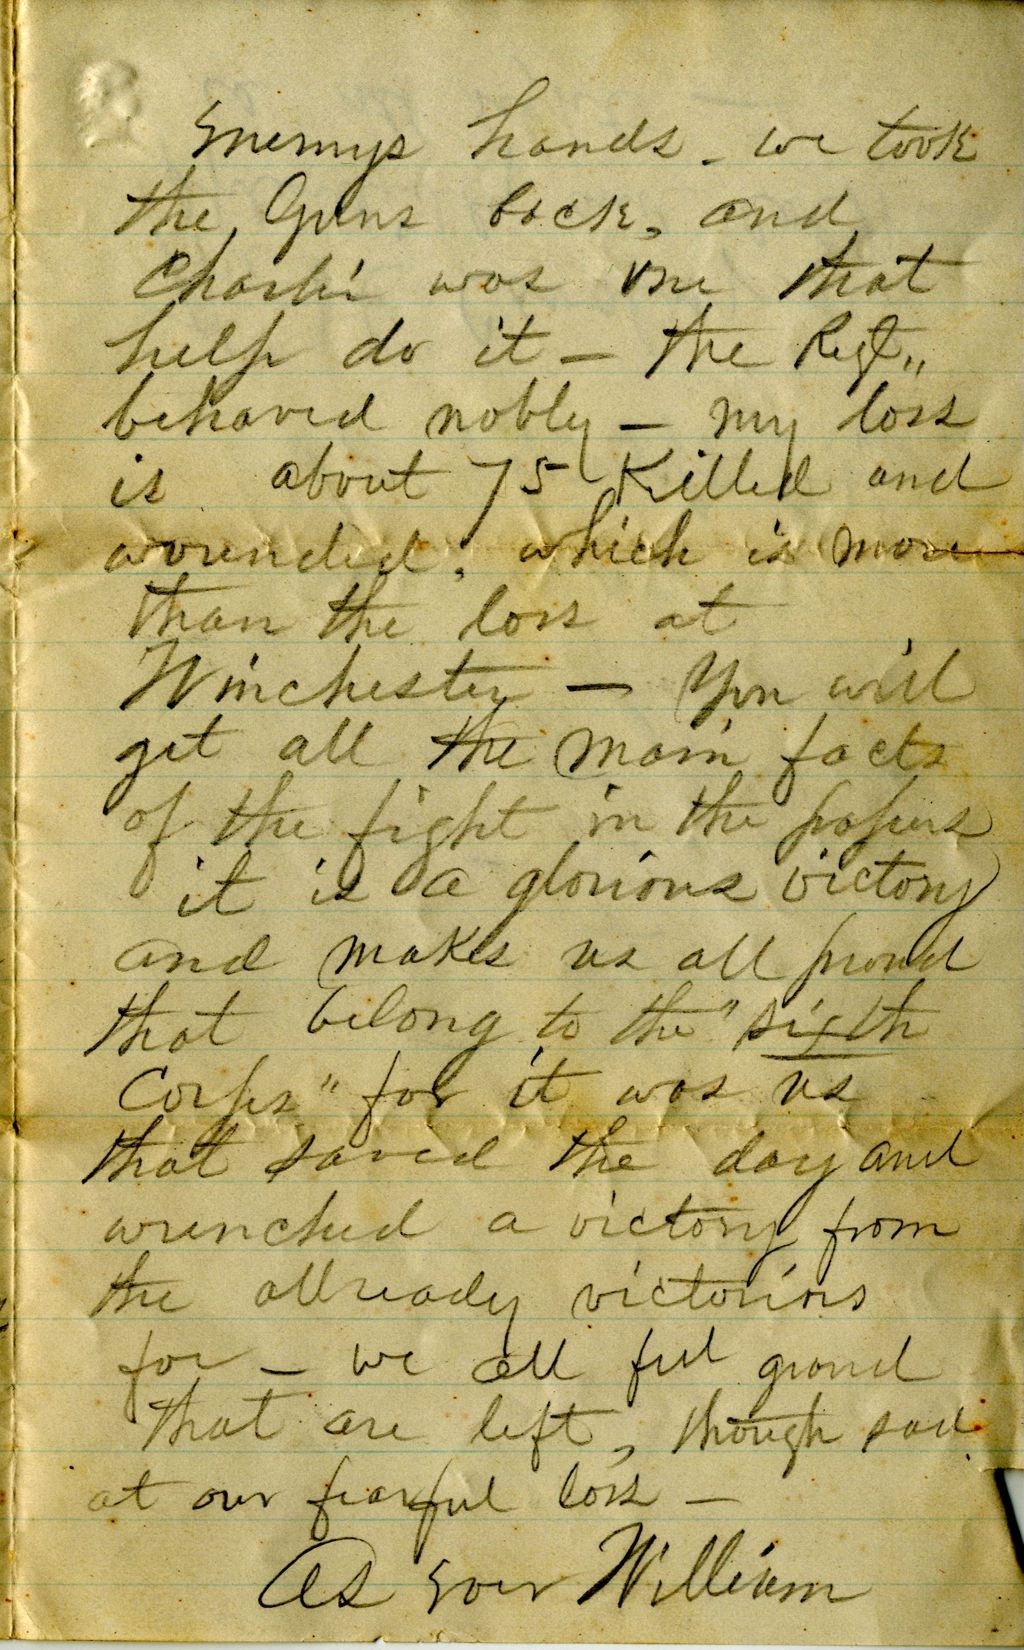 Enemys hands - we took
the Guns back, and
Charlie was one that
help do it - the Regt,,
behaved nobly - my loss
is about 75 Killed and
wounded, which is more
than the loss at
Winchester - You will
get all the main facts
of the fight in the papers
it is a glorious victory
and makes us all proud
that belong to the "sixth
Corps" for it was us
that saved the day and
wrenched a victory from
the allready victorious
foe - we all feel proud
that are left, though sad
at our fearful loss -
As Ever William